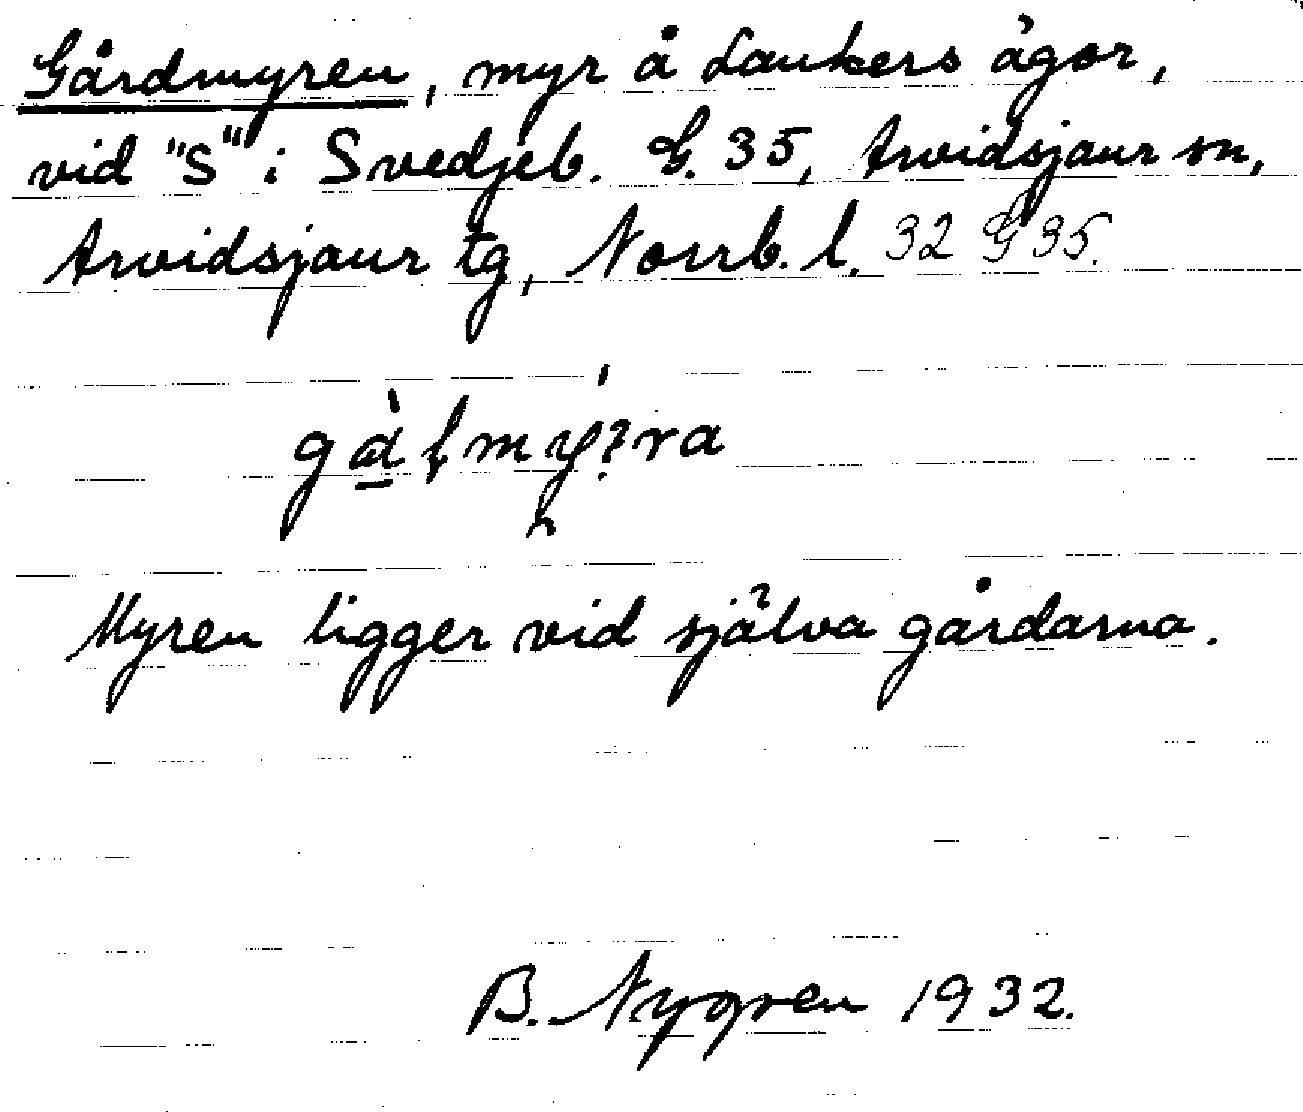 Gårdmyren, myr å Laukers ägor,
vid "S" i Svedjeb. G. 35, Arvidsjaur sn,
Arvidsjaur tg, Norrb. l. 32 G 35.
Myren ligger vid själva gårdarna.
B. Nygren 1932.